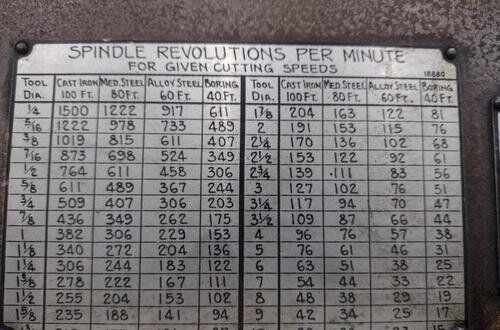 SPINDLE REVOLUTIONS PER MINUTE
FOR GIVEN CUTTING SPEEDS
18880
TOOL CAST IRON MED. STEEL ALLOY STEEL BORING TOOL CAST IRON MED. STEEL ALLOY STEEL BORING
DIA. 100 FT. 80 FT. 60 FT. 40 FT. DIA. 100 FT. 80 FT. 60 FT. 40 FT.
1/4 1500 1222 917 611 1 7/8 204 163 122 81
5/16 1222 978 733 489 2 191 153 115 76
3/8 1019 815 611 407 2 1/4 170 136 102 68
7/16 873 698 524 349 2 1/2 153 122 92 61
1/2 764 611 458 306 2 3/4 139 111 83 56
5/8 611 489 367 244 3 127 102 76 51
3/4 509 407 306 203 3 1/4 117 94 70 47
7/8 436 349 262 175 3 1/2 109 87 66 44
1 382 306 229 153 4 96 76 57 38
1 1/8 340 272 204 136 5 76 61 46 31
1 1/4 306 244 183 122 6 63 51 38 25
1 3/8 278 222 167 111 7 54 44 33 22
1 1/2 255 204 153 102 8 48 38 29 19
1 5/8 235 188 141 94 9 42 34 25 17